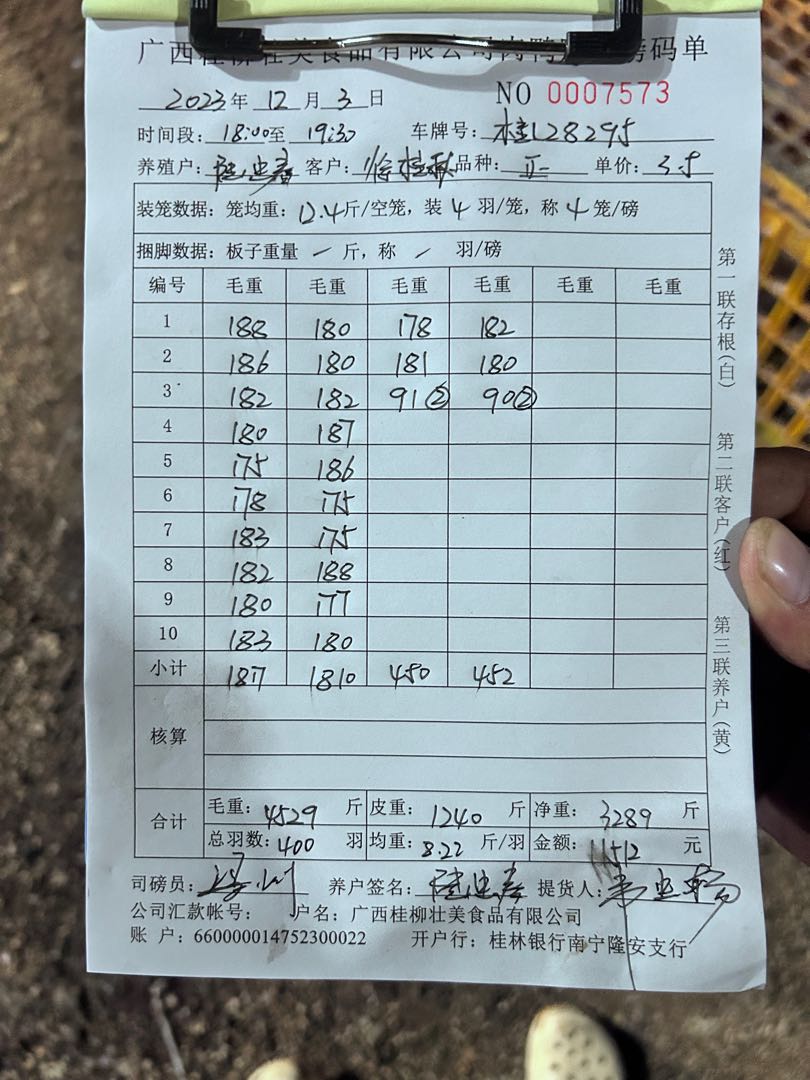 广西桂柳壮美食品有限公司肉鸭 码单
2023年 12月 3日 NO 0007573
时间段: 18:00至 19:30 车牌号: 桂L28295
养殖户: 客户: 徐桂秋 品种: 单价: 3.5
装笼数据: 笼均重: 12.4斤/空笼, 装 4 羽/笼, 称 4 笼/磅
捆脚数据: 板子重量 / 斤, 称 / 羽/磅
编号 毛重 毛重 毛重 毛重 毛重 毛重
1 188 180 178 182
2 186 180 181 180
3 182 182 91② 90②
4 180 187
5 175 186
6 178 175
7 183 175
8 182 188
9 180 177
10 183 180
小计 1817 1810 450 452
核算
合计 毛重: 4529 斤 皮重: 1240 斤 净重: 3289 斤
总羽数: 400 羽 均重: 8.22 斤/羽 金额: 11512 元
司磅员: 养户签名: 提货人:
公司汇款帐号: 户名: 广西桂柳壮美食品有限公司
账 户: 660000014752300022 开户行: 桂林银行南宁隆安支行
第一联存根(白)
第二联客户(红)
第三联养户(黄)